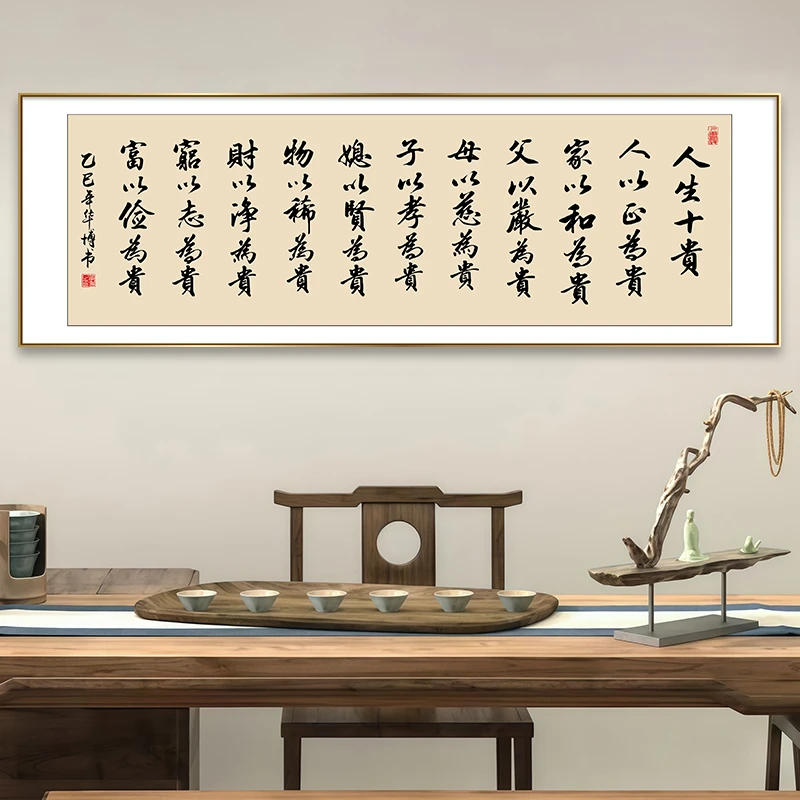 人生十貴
人以正為貴
家以和為貴
父以嚴為貴
母以慈為貴
子以孝為貴
媳以賢為貴
物以稀為貴
財以浄為貴
窮以志為貴
富以儉為貴
乙巳年华博书